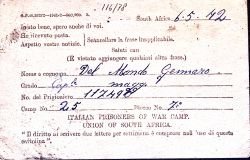 116/78
South Africa 6.5.42
Inizio bene, spero anche di voi
Ho ricevuto posta.
Aspetto vostre notizie.
Scancellare la frase inapplicabile.
Saluti cari
(È vietato aggiungere qualsiasi altra frase.)
Nome e cognome Del Mondo Gennaro
Grado Cap. magg.
No. del Prigioniero 117498
Camp No. 25 Blocco No. 7
ITALIAN PRISONERS OF WAR CAMP.
UNION OF SOUTH AFRICA.
"Il diritto di scrivere due lettere per settimana è compreso nell'uso di questa